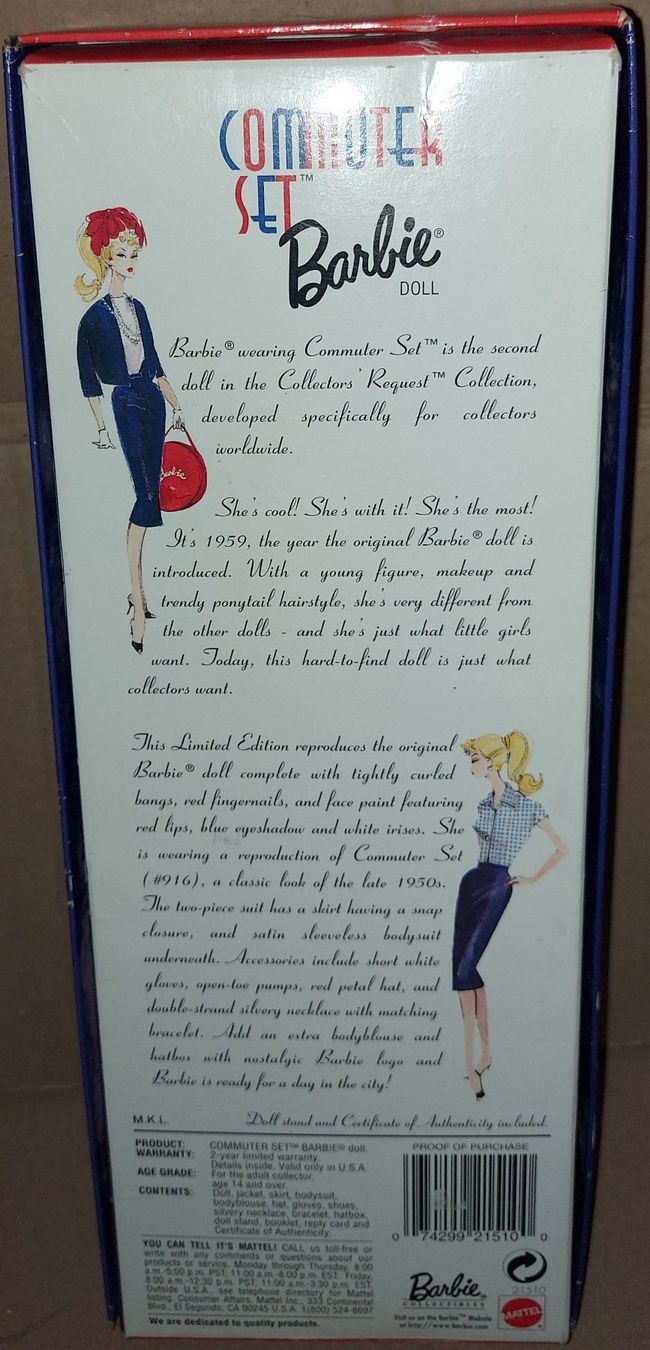 COMMUTER
SET™
Barbie®
DOLL
Barbie® wearing Commuter Set™ is the second
doll in the Collectors' Request™ Collection,
developed specifically for collectors
worldwide.
Barbie
She's cool! She's with it! She's the most!
It's 1959, the year the original Barbie® doll is
introduced. With a young figure, makeup and
trendy ponytail hairstyle, she's very different from
the other dolls - and she's just what little girls
want. Today, this hard-to-find doll is just what
collectors want.
This Limited Edition reproduces the original
Barbie® doll complete with tightly curled
bangs, red fingernails, and face paint featuring
red lips, blue eyeshadow and white irises. She
is wearing a reproduction of Commuter Set
(#916), a classic look of the late 1950s.
The two-piece suit has a skirt having a snap
closure, and satin sleeveless bodysuit
underneath. Accessories include short white
gloves, open-toe pumps, red petal hat, and
double-strand silvery necklace with matching
bracelet. Add an extra bodyblouse and
hatbox with nostalgic Barbie logo and
Barbie is ready for a day in the city!
M.K.L. Doll stand and Certificate of Authenticity included.
PRODUCT: COMMUTER SET™ BARBIE® doll.
WARRANTY: 2-year limited warranty.
Details inside. Valid only in U.S.A.
AGE GRADE: For the adult collector,
age 14 and over.
CONTENTS: Doll, jacket, skirt, bodysuit,
bodyblouse, hat, gloves, shoes,
silvery necklace, bracelet, hatbox,
doll stand, booklet, reply card and
Certificate of Authenticity.
YOU CAN TELL IT'S MATTEL! CALL us toll-free or
write with any comments or questions about our
products or service. Monday through Thursday, 8:00
a.m.-5:00 p.m. PST; 11:00 a.m.-8:00 p.m. EST. Friday,
8:00 a.m.-12:30 p.m. PST; 11:00 a.m.-3:30 p.m. EST.
Outside U.S.A., see telephone directory for Mattel
listing. Consumer Affairs, Mattel Inc., 333 Continental
Blvd., El Segundo, CA 90245 U.S.A. 1(800) 524-8697
We are dedicated to quality products.
PROOF OF PURCHASE
0 74299 21510 0
21510
Barbie®
COLLECTIBLES
Visit us on the Barbie™ Website
at http://www.barbie.com
MATTEL